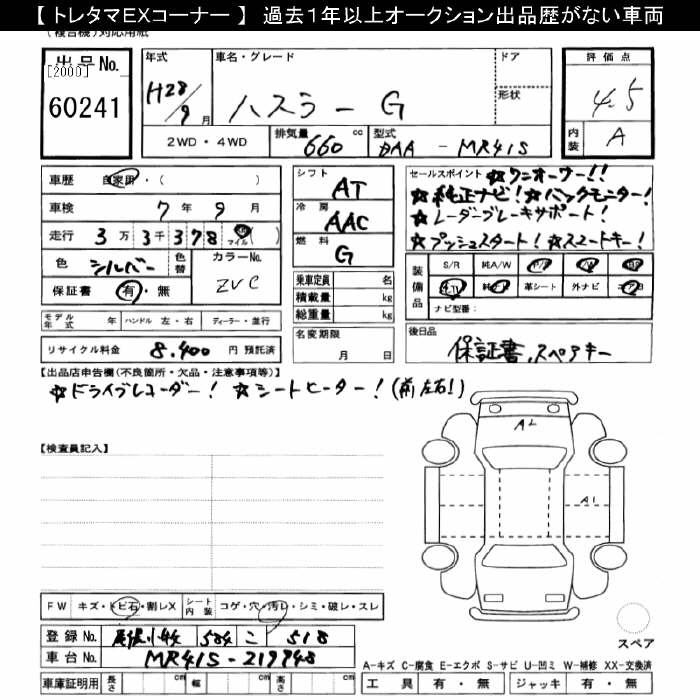 【 トレタマEXコーナー 】 過去1年以上オークション出品歴がない車両
(複合機)対応用紙
出品No. [2000] 60241
年式 H28/9月
車名・グレード ハスラー G
ドア
形状
評価点 4.5
内装 A
2WD・4WD
排気量 660 cc
型式 DAA - MR41S
車歴 自家用・( )
車検 7年 9月
走行 3万 3千 378 km マイル ( )
色 シルバー 色替 カラーNo. ZVC
保証書 有・無
モデル年式 年 ハンドル 左・右 ディーラー・並行
リサイクル料金 8,400 円 預託済
シフト AT
冷房 AAC
燃料 G
乗車定員 名
積載量 kg
総重量 kg
名変期限 月 日
セールスポイント ☆ワンオーナー!!
☆純正ナビ!☆バックモニター!
☆レーダーブレーキサポート!
☆プッシュスタート!☆スマートキー!
装備品 S/R 純A/W
革シート 外ナビ
ナビ型番:
後日品 保証書、スペアキー
【出品店申告欄(不良箇所・欠品・注意事項等)】
☆ドライブレコーダー! ☆シートヒーター!(前左右!)
【検査員記入】
A2
A1
FW キズ・トビ石・割レX シート内装 コゲ・穴・汚レ・シミ・破レ・スレ
登録No. 尾張小牧 584 こ 518
車台No. MR41S-219948
車庫証明用 長さ cm 幅 cm 高さ cm
スペア
A-キズ C-腐食 E-エクボ S-サビ U-凹ミ W-補修 XX-交換済
工具 有・無 ジャッキ 有・無